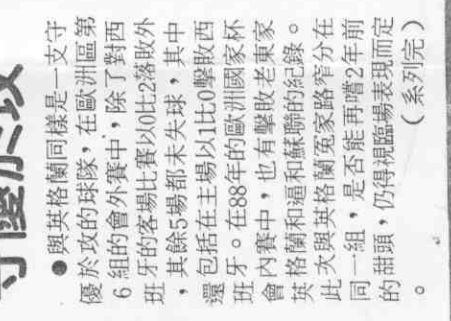 守優於攻
●與其格蘭同樣是一支守
優於攻的球隊,在歐洲區第
6組的會外賽中,除了對西
班牙的客場比賽以0比2落敗外
,其餘5場都未失球,其中
還包括在主場以1比0擊敗西
班牙。在88年的歐洲國家杯
會內賽中,也有擊敗老東家
英格蘭和逼和蘇聯的紀錄。
此次與其格蘭冤家路窄分在
同一組,是否能再嚐2年前
的甜頭,仍得視臨場表現而定
。(系列完)